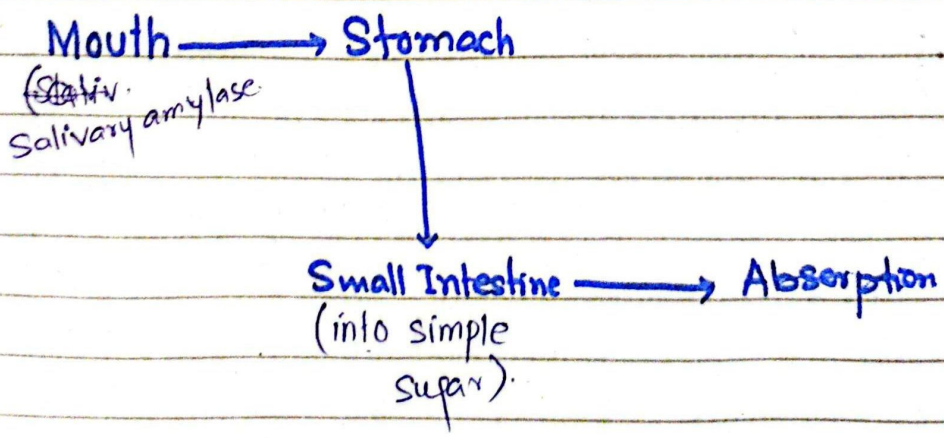 Mouth → Stomach
Salivary amylase
Small Intestine → Absorption
(into simple
sugar).